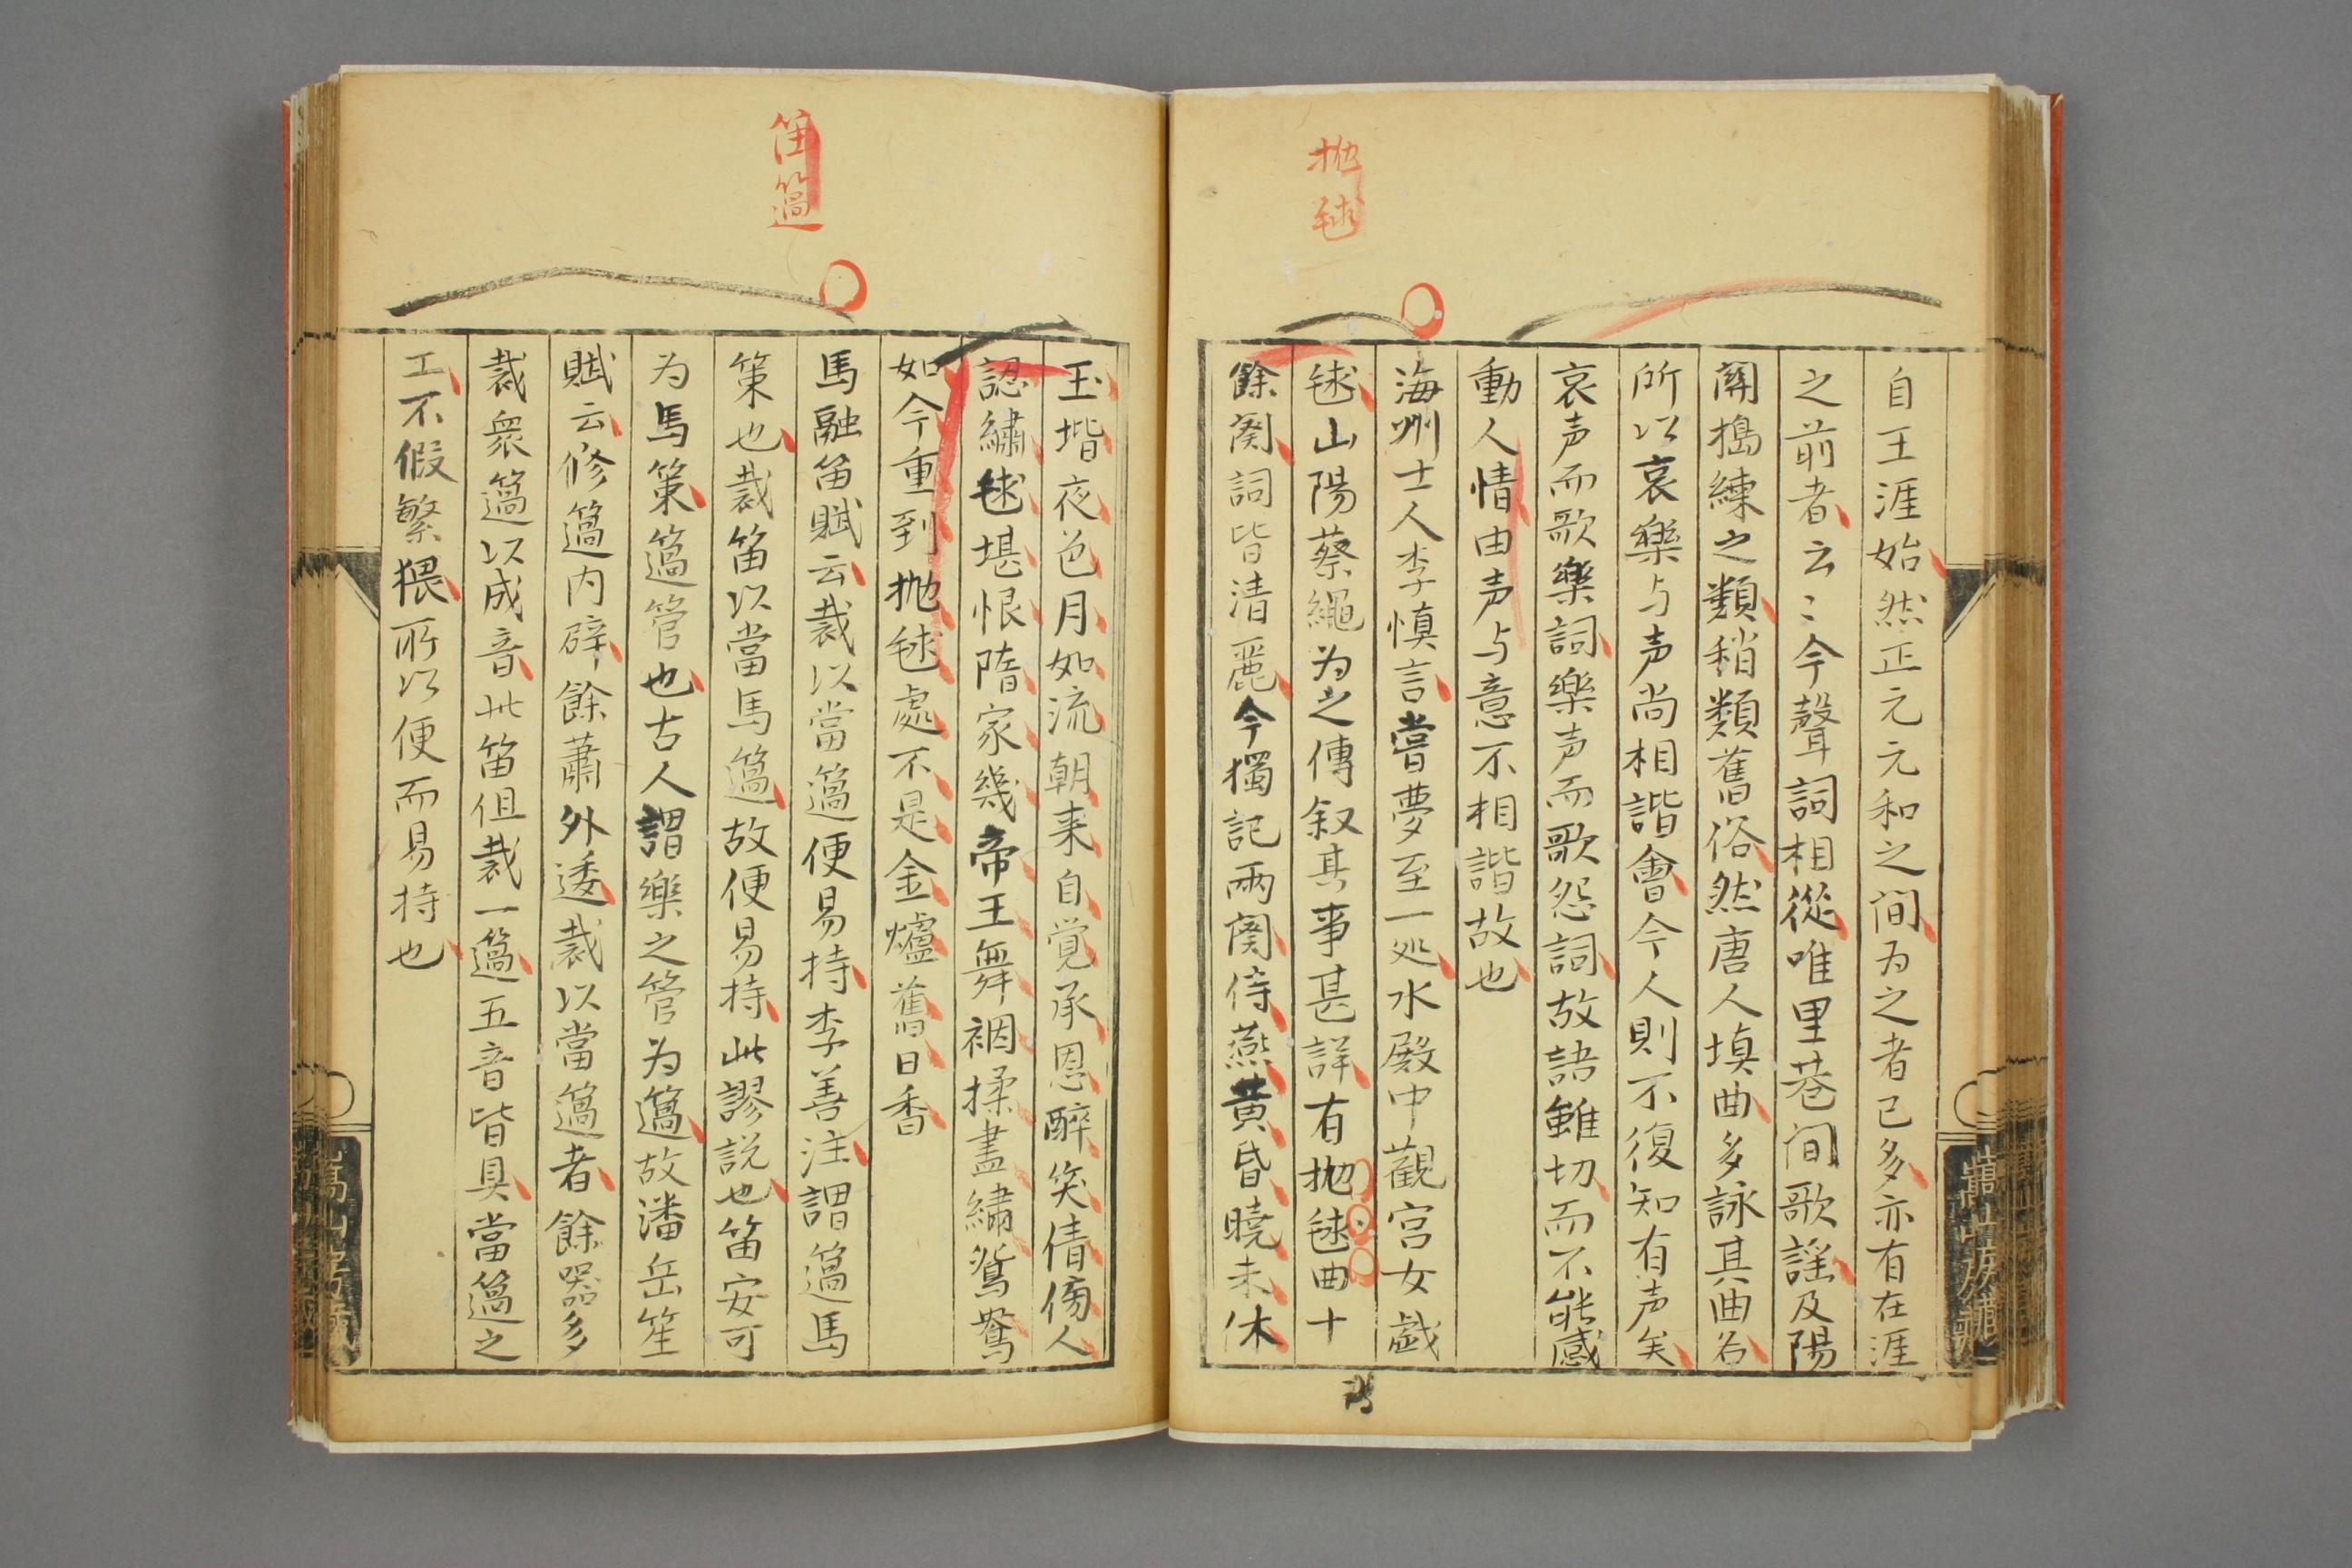 抛毬
自王涯始然正元元和之间为之者已多亦有在涯
之前者云〻今聲詞相從唯里巷间歌謡及陽
関搗練之類稍類舊俗然唐人填曲多詠其曲名
所以哀樂与声尚相諧會今人則不復知有声矣
哀声而歌樂詞樂声而歌怨詞故語雖切而不能感
動人情由声与意不相諧故也
海州士人李慎言嘗夢至一処水殿中觀宫女戯
毬山陽蔡繩为之傳叙其事甚詳有抛毬曲十
餘闋詞皆清麗今獨記兩闋侍燕黄昏曉未休
玉堦夜色月如流朝来自覚承恩醉笑倩傍人
認繡毬堪恨隋家幾帝王舞裀揉盡繡鴛鴦
如今重到抛毬處不是金爐舊日香
笛簻
馬融笛賦云裁以當簻便易持李善注謂簻馬
策也裁笛以當馬簻故便易持此謬説也笛安可
为馬策簻管也古人謂樂之管为簻故潘岳笙
賦云修簻内辟餘蕭外逶裁以當簻者餘器多
裁衆簻以成音此笛但裁一簻五音皆具當簻之
工不假繁猥所以便而易持也